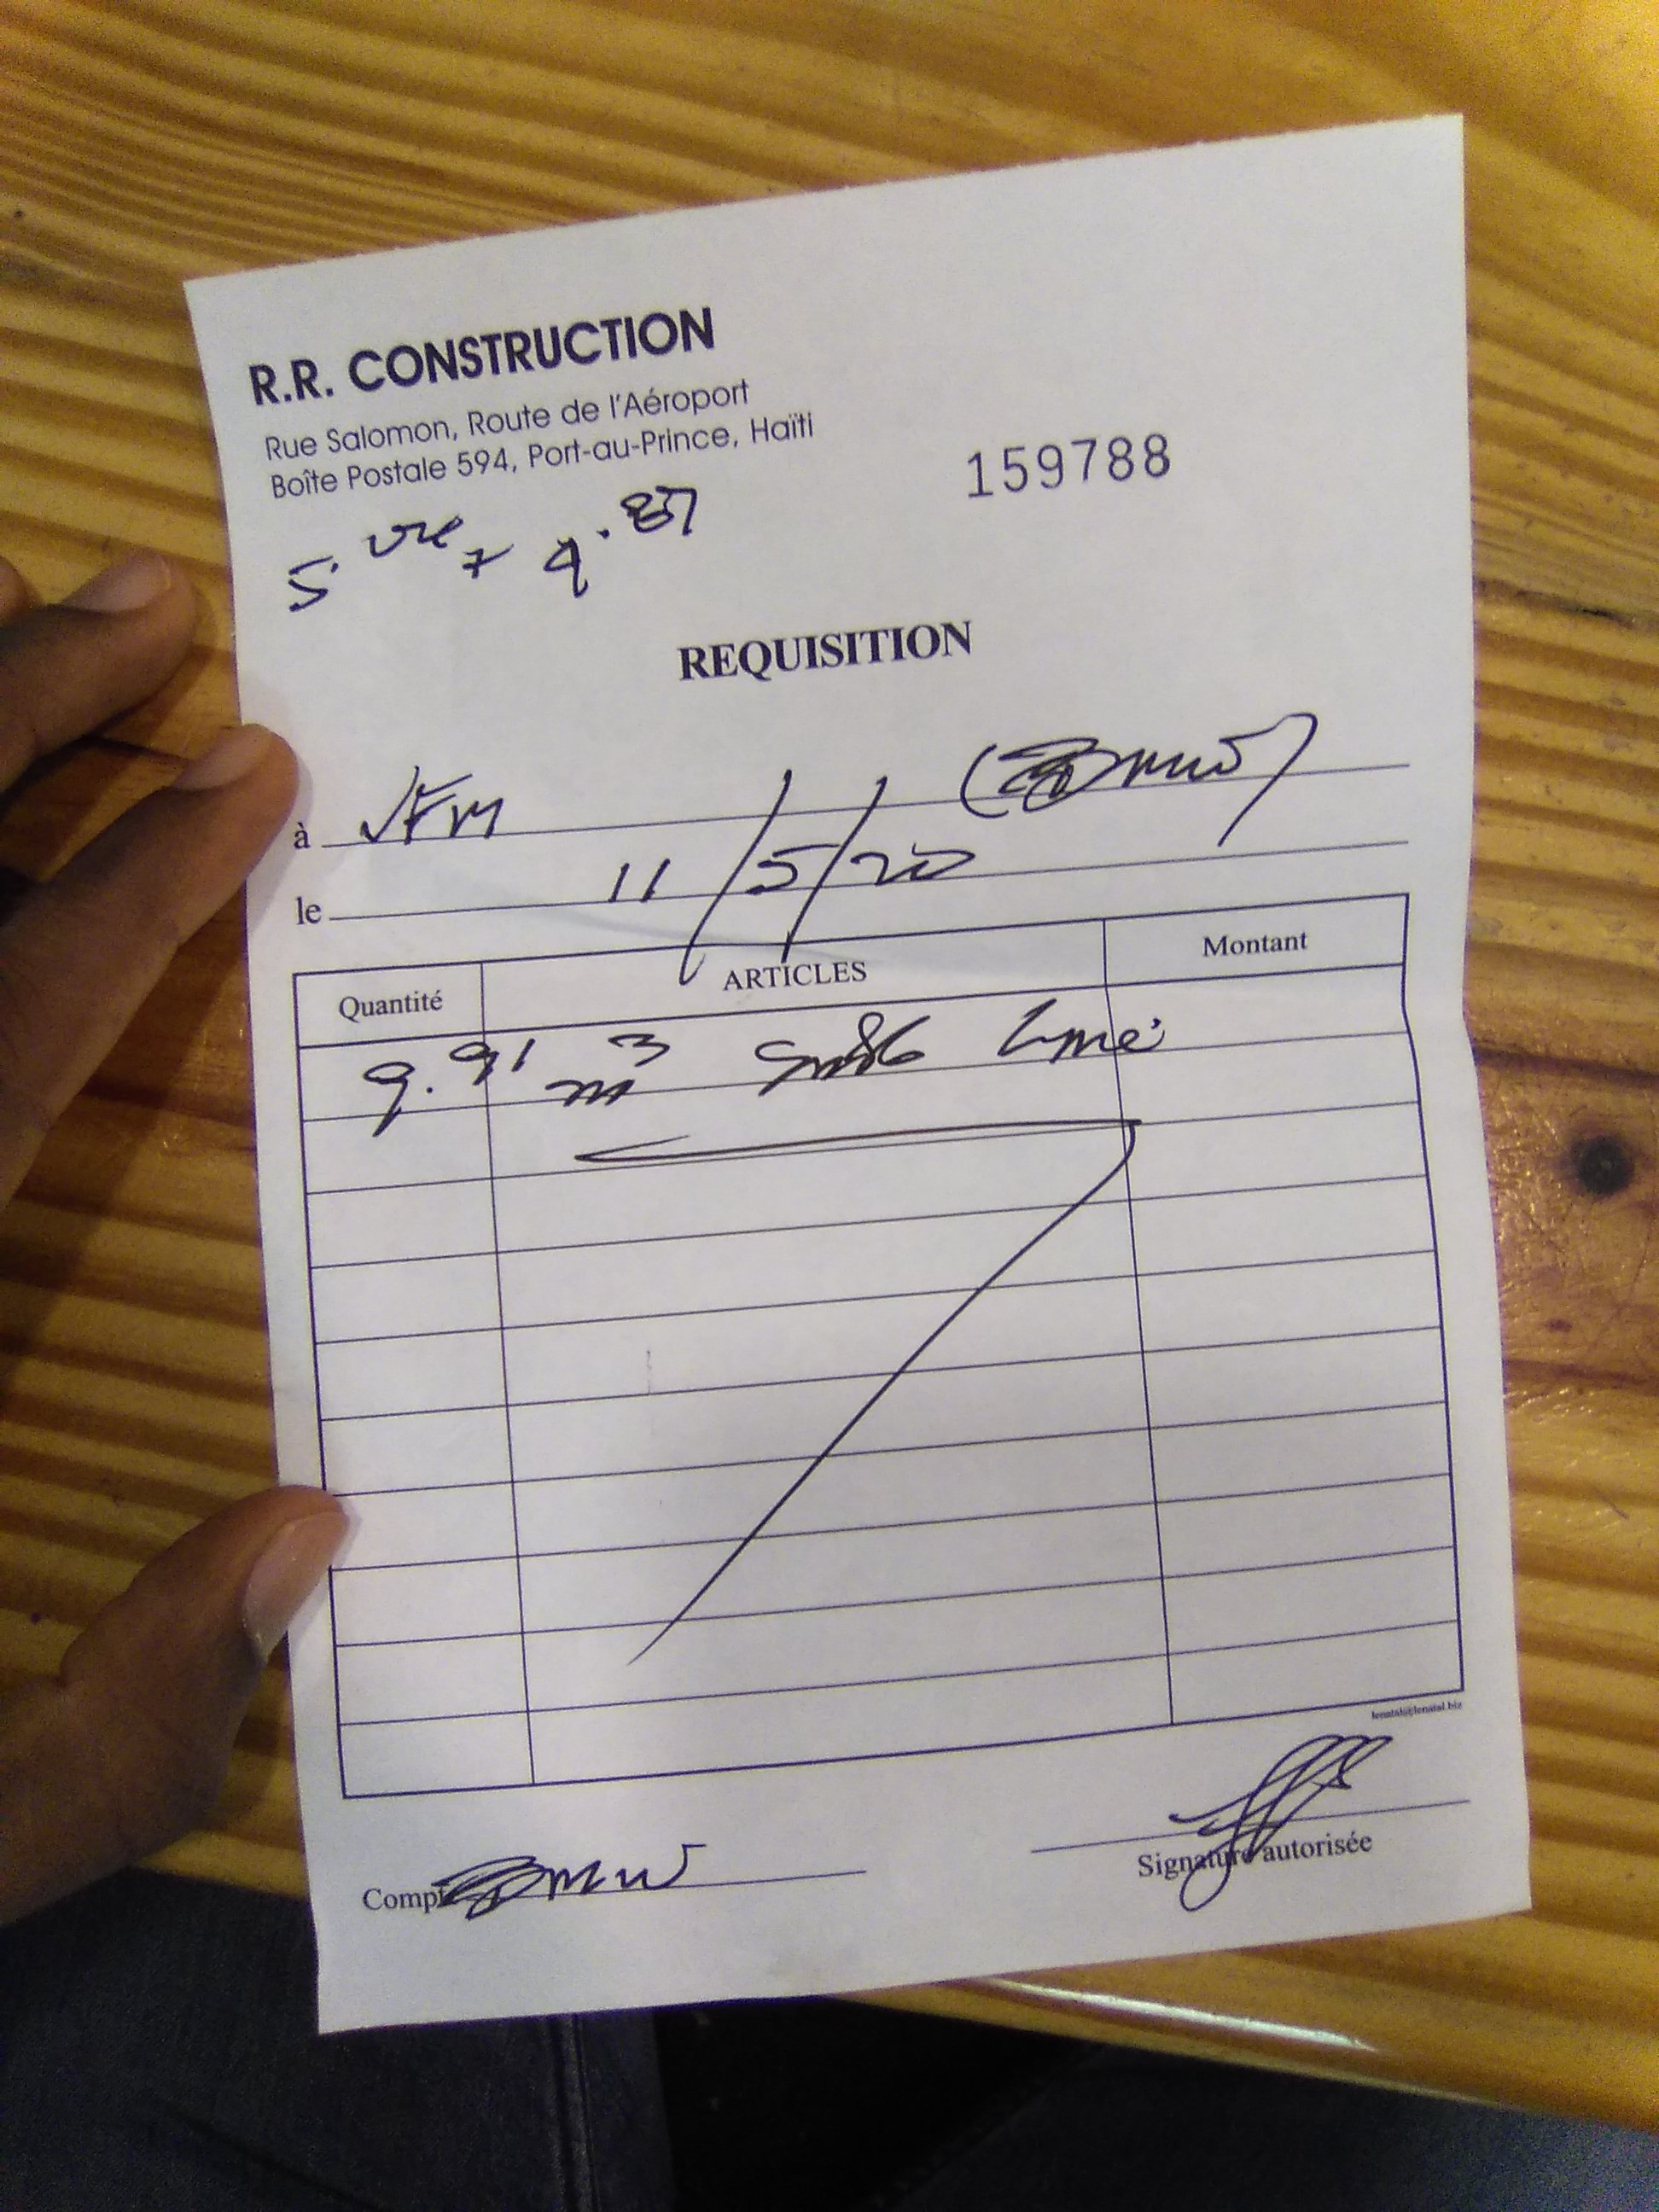 R.R. CONSTRUCTION
Rue Salomon, Route de l'Aéroport
Boîte Postale 594, Port-au-Prince, Haïti
159788
REQUISITION
à JFM
le 11/5/20
Quantité ARTICLES Montant
9.91 m3
lenatal@lenatal.biz
Signature autorisée